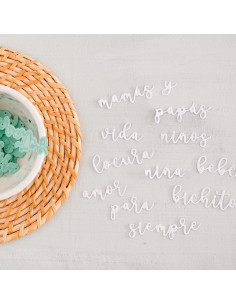 mamás y
papás
vida niños
locura
nina bebé
amor
bichito
para
siempre